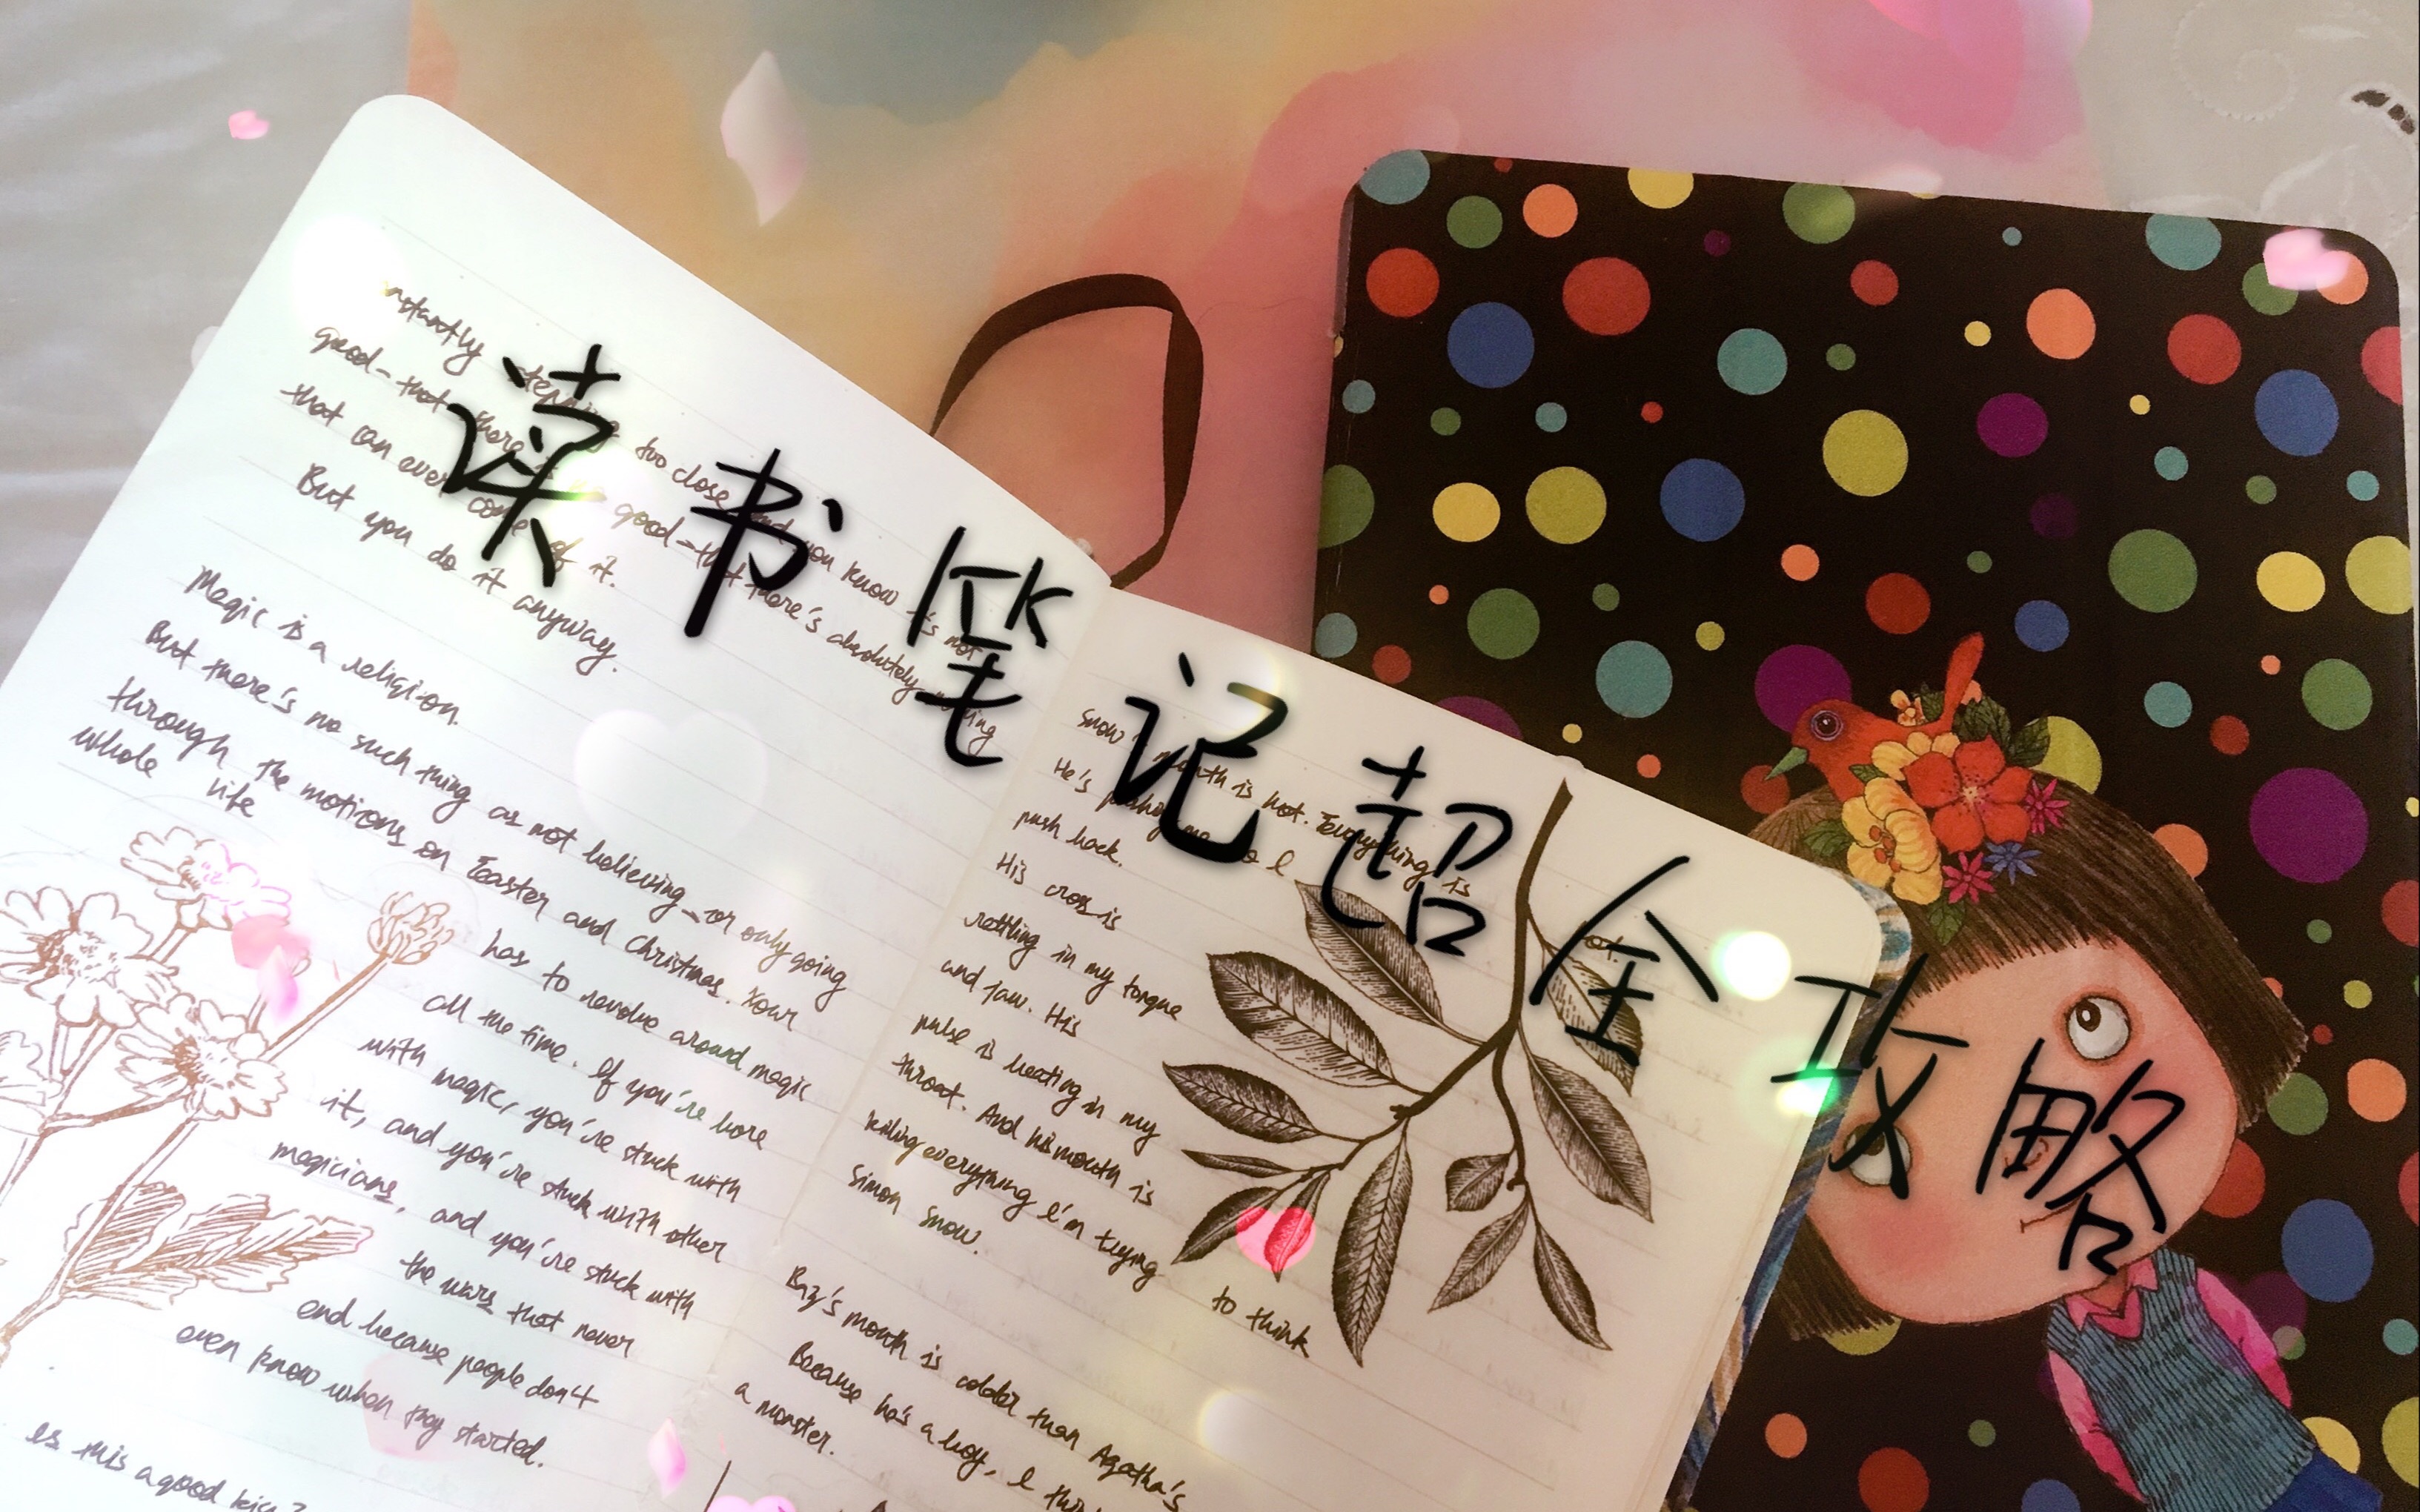 读书笔记超全攻略
too close and you know it's not
good - that there is no good - that there's absolutely nothing
that can ever come of it.
But you do it anyway.
Magic is a religion.
But there's no such thing as not believing - or only going
through the motions on Easter and Christmas. Your
whole life
has to revolve around magic
all the time. If you're bore
with magic, you're stuck with
it, and you're stuck with other
magicians, and you're stuck with
the wars that never
end because people don't
even know when they started.
es this a good kiss?
Snow's mouth is hot. Everything is hot.
He's pushing me so I
push back.
His cross is
rattling in my tongue
and jaw. His
pulse is beating in my
throat. And his mouth is
killing everything I'm trying
to think
Simon Snow.
Baz's mouth is colder than Agatha's
Because he's a boy, I
a monster.